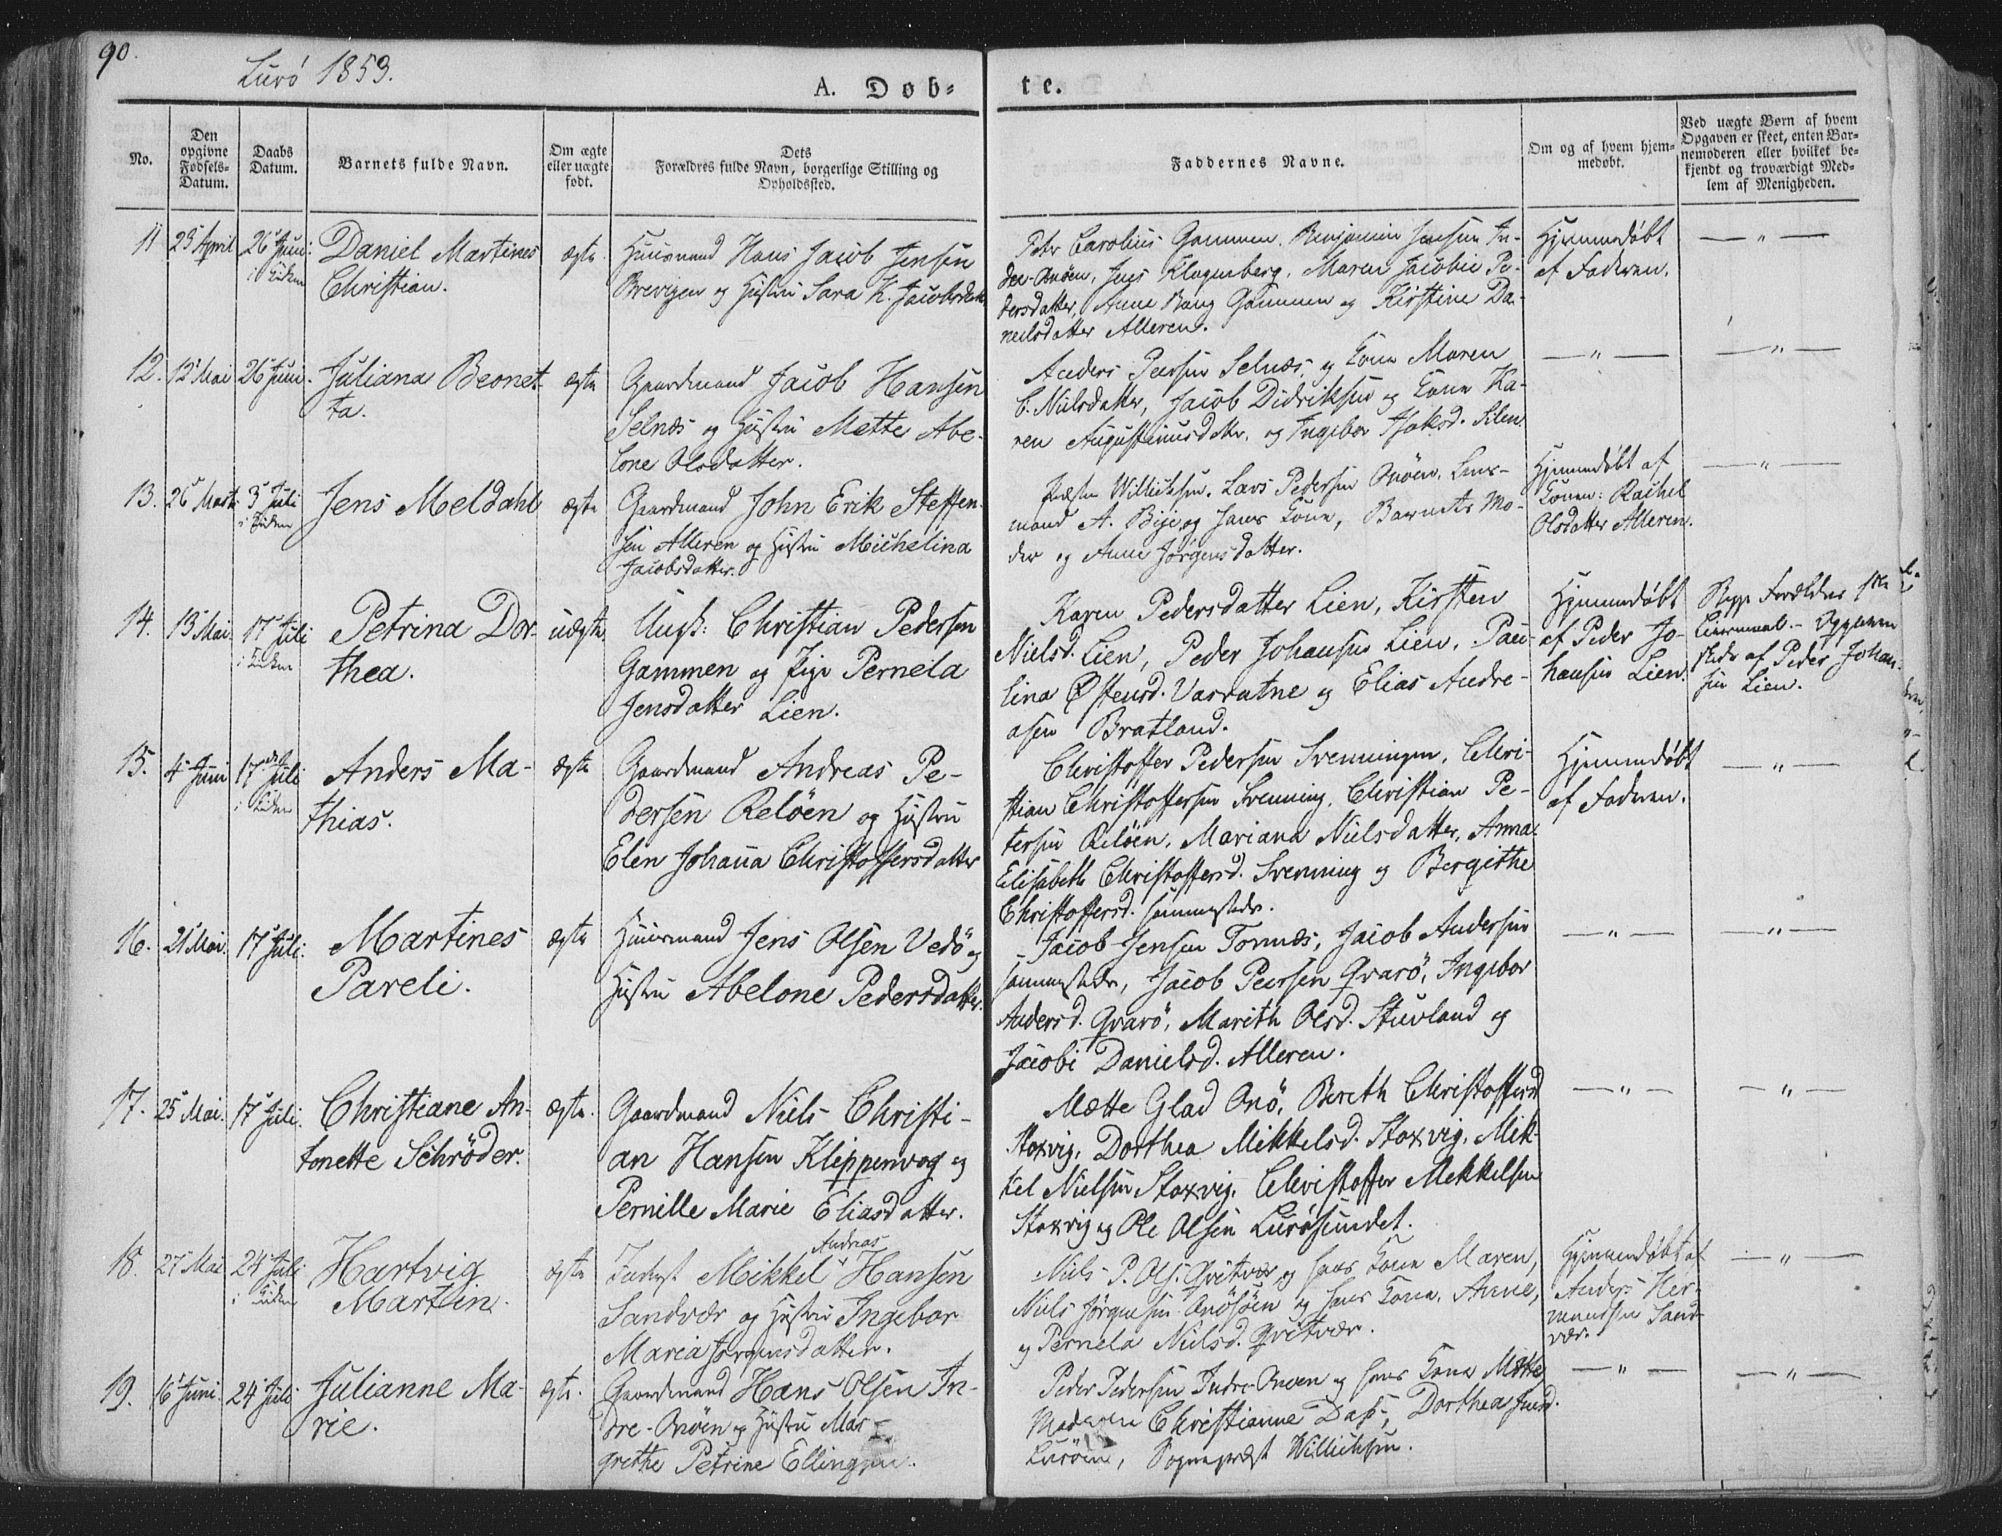 90.
Lurö 1853.
A. Døb-
te.
No.
Den opgivne Fødsels-Datum.
Daabs Datum.
Barnets fulde Navn.
Om ægte eller uægte født.
Dets Forældres fulde Navn, borgerlige Stilling og Opholdssted.
Faddernes Navne.
Om og af hvem hjem-
medøbt.
Ved uægte Børn af hvem
Opgaven er skeet, enten Bar-
nemoderen eller hvilket be-
kjendt og troværdigt Med-
lem af Menigheden.
11 April 26 Juni Daniel Martines ægte Huusmand Hans Jacob Jensen
i Kirken Christian. og Hustru Sara K. Jacobsdatter
Peter Carolius Gammen, Benjamin Jensen In-
dre-Onöen, Jens Klogenberg, Maren Jacobie Pe-
dersdatter, Anne Bang Gammen og Kirstine Da-
nielsdatter Alleren.
Hjemmedøbt
af Faderen.
— " —
12. 12 Mai 26 Juni Juliana Beonet- ægte Gaardmand Jacob Hansen
ta. Selnæs og Hustru Mette Abe-
lone Olsdatter.
Anders Peersen Selnæs og Kone Maren
C. Nielsdatter, Jacob Didriksen og Kone Ka-
ren Augustinusdatter og Ingebor
— " —
— " —
13. 26 Marts 3 Juli Jens Meldahl ægte Gaardmand John Erik Steffen-
i Kirken sen Alleren og Hustru Michelina
Jacobsdatter.
Præsten Willichsen, Lars Pedersen Onöen, Lens-
mand A. og hans Kone, Barnets Mo-
der og Anne Jørgensdatter.
Hjemmedøbt af
Konen: Rachel
Olsdatter Alleren.
— " —
14. 13 Mai 17 Juli Petrina Dor- uægte Ungk: Christian Pedersen
i Kirken thea. Gammen og Pige Pernela
Jensdatter Lien.
Karen Pedersdatter Lien, Kirsten
Nielsd. Lien, Peder Johansen Lien, Pau-
lina Østensd. Varratne og Elias Andre-
asen Bratland.
Hjemmedøbt
af Peder Jo-
hansen Lien.
Begge Forældres 1ste
Leiermaal. Opgaven
skede af Peder Johan-
sen Lien.
15. 4 Juni 17 Juli Anders Ma- ægte Gaardmand Andreas Pe-
i Kirken thias. dersen Relöen og Hustru
Elen Johanna Christoffersdatter
Christoffer Pedersen Svenningen, Chri-
stian Christoffersen Svenning, Christian Pe-
tersen Relöen, Mariana Nielsdatter, Anna
Elisabeth Christoffersd. Svenning og Bergithe
Christoffersd. sammesteds.
Hjemmedøbt
af Faderen.
— " —
16. 21 Mai. 17 Juli. Martines ægte Huusmand Jens Olsen Vedö og
Pareli. Hustru Abelone Pedersdatter.
Jacob Jensen Tonnæs, Jacob Andersen
sammesteds, Jacob Peersen Qvarö, Ingebor
Andersd. Qvarö, Marith Olsd. Stuvland og
Jacobi Danielsd. Alleren.
— " —
— " —
17. 25 Mai. 17 Juli. Christiane An- ægte. Gaardmand Niels Christi-
tonette Schröder. an Hansen Klippenvog og
Pernille Marie Eliasdatter.
Mætte Glad Onö, Bereth Christoffersd.
Stoxvig, Dorthea Mikkelsd. Stoxvig, Mik-
kel Nielsen Stoxvig, Christoffer Mekkelsen
Stoxvig og Ole Olsen Lurösundet.
— " —
— " —
18. 27 Mai 24 Juli Hartvig ægte Inderst Mikkel Andreas Hansen
i Kirken Martin. Sandvær og Hustru Ingebor
Maria Jørgensdatter.
Niels P. Ols. Qvitvær og hans Kone Maren,
Niels Jörgensen Onösöen og hans Kone, Anne,
og Pernela Nielsd. Qvitvær.
Hjemmedøbt af
Anders Her-
mansen Sand-
vær.
— " —
19. 16 Juni. 24 Juli Julianne Ma- ægte. Gaardmand Hans Olsen In-
rie. dre-Onöen og Hustru Mar-
grethe Petrine Ellingsen.
Peder Pedersen Indre-Onöen og hans Kone Mette,
Madamen Christianne Dass, Dorthea
Luröen, Sognepræst Willichsen.
— " —
— " —